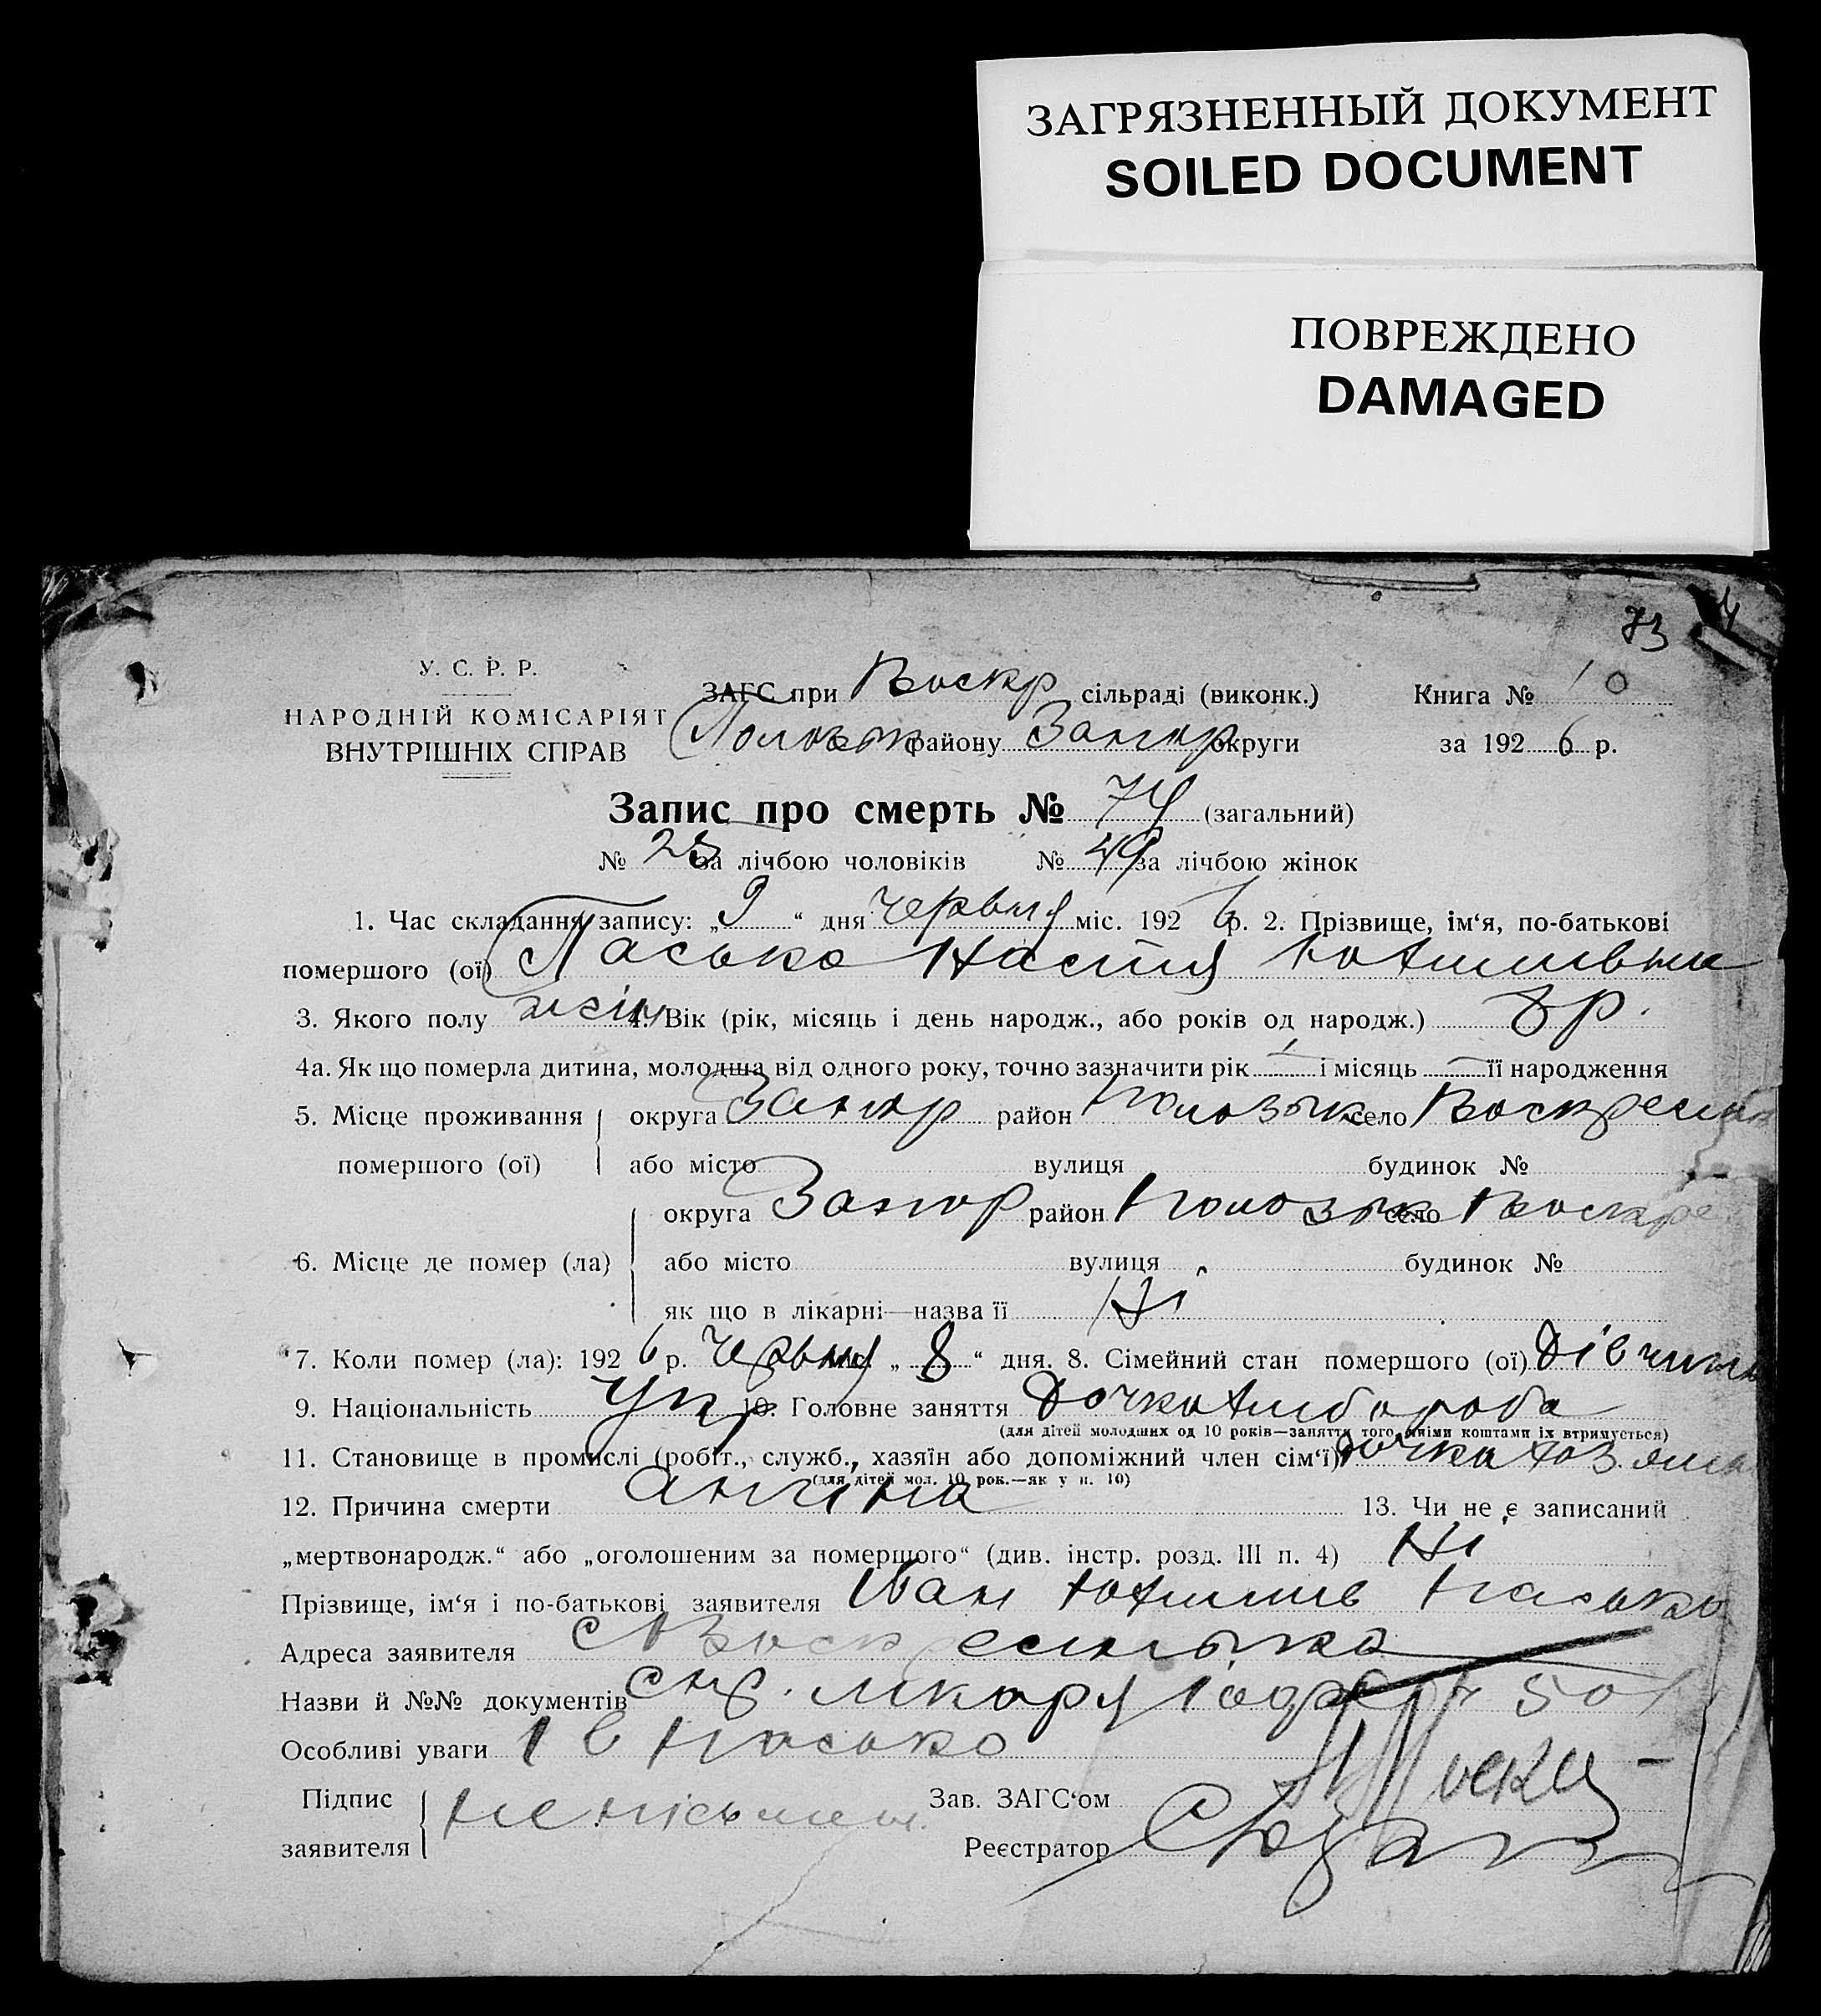 ЗАГРЯЗНЕННЫЙ ДОКУМЕНТ
SOILED DOCUMENT
ПОВРЕЖДЕНО
DAMAGED
73
У. С. Р. Р.
НАРОДНІЙ КОМІСАРІЯТ
ВНУТРІШНІХ СПРАВ
ЗАГС при Воскр сільраді (виконк.) Книга № 10
району Запор округи за 1926 р.
Запис про смерть № 74 (загальний)
№ 25 за лічбою чоловіків № 49 за лічбою жінок
1. Час складання запису: „9“ дня червня міс. 1926 р. 2. Прізвище, ім‘я, по-батькові
помершого (ої) Пасько Настя Юхимівна
3. Якого полу жін 4. Вік (рік, місяць і день народж., або років од народж.) 8 р.
4а. Як що померла дитина, молодша від одного року, точно зазначити рік — і місяць — її народження
5. Місце проживання помершого (ої) округа Запор район Полозьк село Воскресен
або місто вулиця будинок №
6. Місце де помер (ла) округа Запор район Полозьк село Воскре
або місто вулиця будинок №
як що в лікарні—назва її Ні
7. Коли помер (ла): 1926 р. червня міс. „8“ дня. 8. Сімейний стан помершого (ої) Дівчина
9. Національність Укр 10. Головне заняття Дочка хлібороба
(для дітей молодших од 10 років—заняття того, чиїми коштами їх втримується)
11. Становище в промислі (робіт., служб., хазяїн або допоміжний член сім‘ї) дочка хоз.
(для дітей мол. 10 рок.—як у п. 10)
12. Причина смерти ангіна 13. Чи не є записаний
„мертвонародж.“ або „оголошеним за померщого“ (див. інстр. розд. III п. 4) Ні
Прізвище, ім‘я і по-батькові заявителя Іван Юхимів Пасько
Адреса заявителя с Воскресенька
Назви й №№ документів лікаря 501
Особливі уваги Пасько
Підпис заявителя неписьмен. Зав. ЗАГС‘ом
Реєстратор